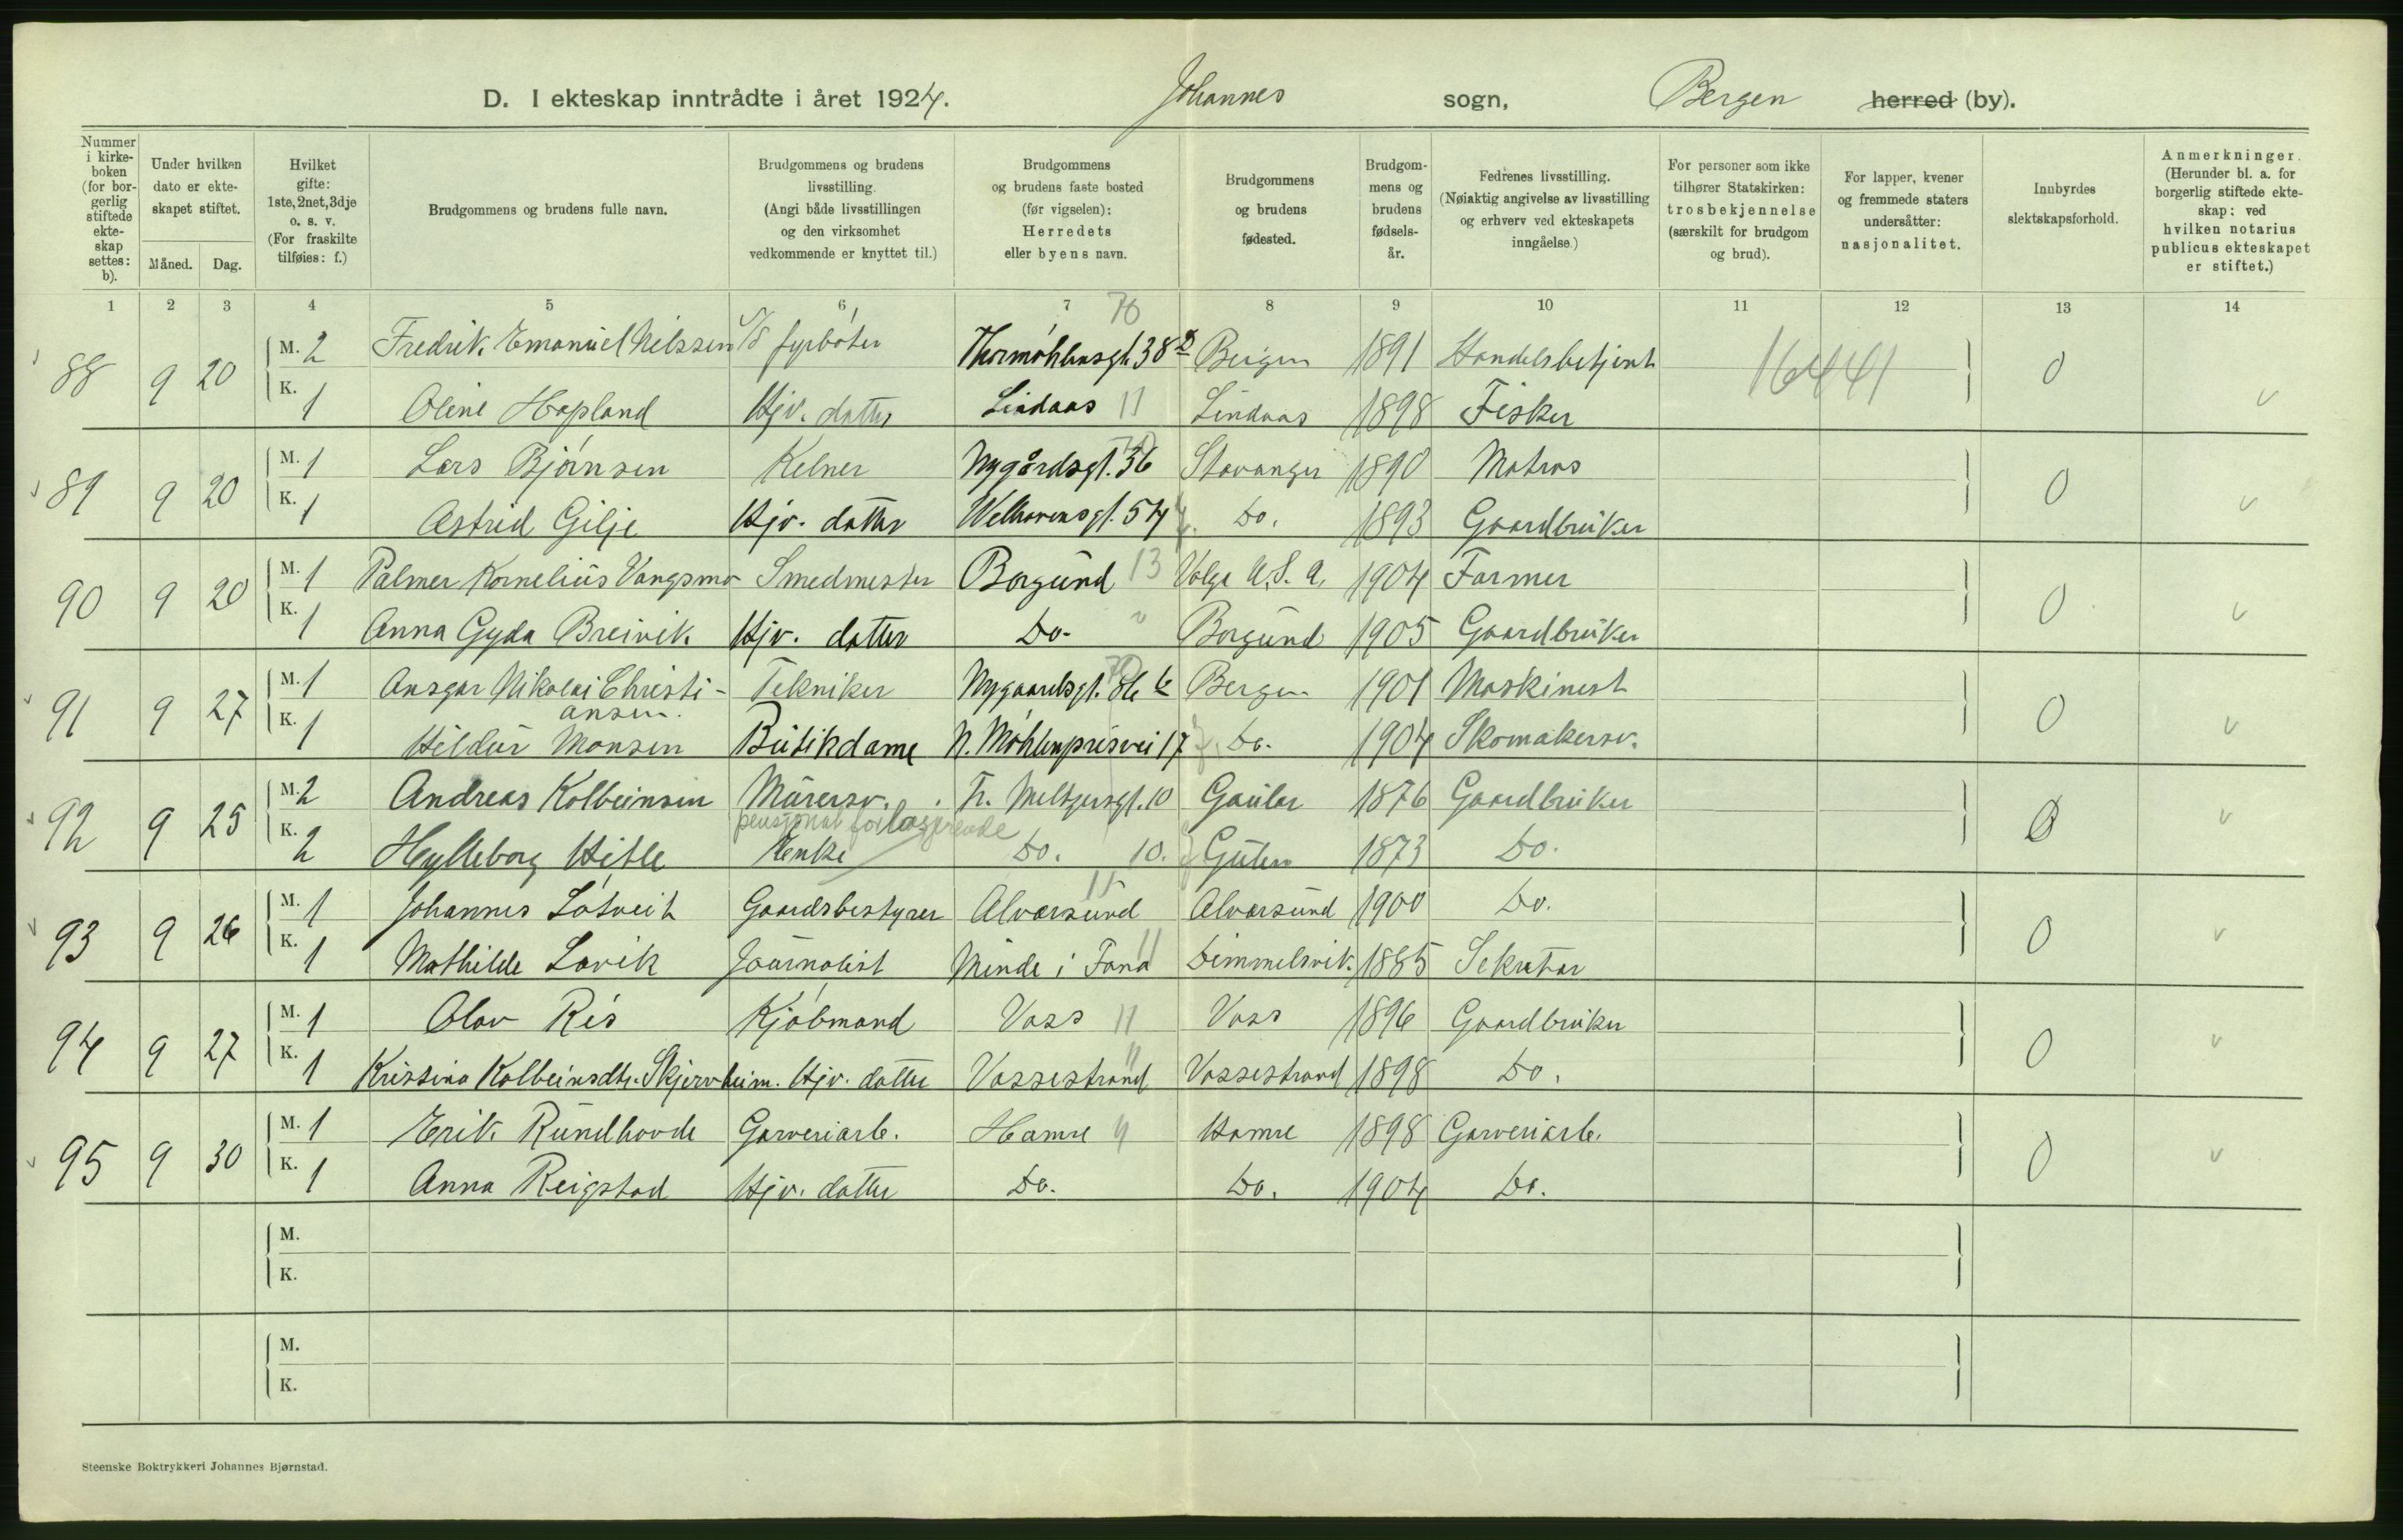 D. I ekteskap inntrådte i året 1924. Johannes sogn, Bergen herred (by).
Nummer i kirke-boken (for bor-gerlig stiftede ekte-skap settes: b).
Under hvilken dato er ekte-skapet stiftet.
Måned. Dag.
Hvilket gifte: 1ste, 2net, 3dje o. s. v. (For fraskilte tilføies: f.)
Brudgommens og brudens fulle navn.
Brudgommens og brudens livsstilling. (Angi både livsstillingen og den virksomhet vedkommende er knyttet til.)
Brudgommens og brudens faste bosted (før vigselen): Herredets eller byens navn.
Brudgommens og brudens fødested.
Brudgom-mens og brudens fødsels-år.
Fedrenes livsstilling. (Nøiaktig angivelse av livsstilling og erhverv ved ekteskapets inngåelse.)
For personer som ikke tilhører Statskirken: trosbekjennelse (særskilt for brudgom og brud).
For lapper, kvener og fremmede staters undersåtter: nasjonalitet.
Innbyrdes slektskapsforhold.
Anmerkninger. (Herunder bl. a. for borgerlig stiftede ekte-skap: ved hvilken notarius publicus ekteskapet er stiftet.)
1 2 3 4 5 6 7 8 9 10 11 12 13 14
70
88 9 20 M. 2 Fredrik Emanuel Nilssen S/S fyrbøter Thormøhlensgt. 38 D Bergen 1891 Handelsbetjent 16441 0
K. 1 Oline Hopland Hjv. datter Lindaas 11 Lindaas 1898 Fisker
89 9 20 M. 1 Lars Bjørnsen Kelner Nygårdsgt. 36 Stavanger 1890 Matros 0
K. 1 Astrid Gilje Hjv. datter Welhavensgt. 54 Do. 1893 Gaardbruker
90 9 20 M. 1 Palmer Kornelius Vangsmo Smedmester Borgund 13 Volga U.S.A. 1904 Farmer 0
K. 1 Anna Gyda Breivik Hjv. datter Do. Borgund 1905 Gaardbruker
91 9 27 M. 1 Ansgar Nikolai Christi- Tekniker Nygaardsgt. 86 b Bergen 1901 Maskinist 0
ansen.
K. 1 Hildur Monsen Butikdame N. Møhlenprisvei 17 Do. 1904 Skomakersv.
92 9 25 M. 2 Andreas Kolbeinsen Murersv. Fr. Meltzersgt. 10 Gaular 1876 Gaardbruker 0
pensjonat for losjerende
K. 2 Hylleborg Hitle Enke Do. 10. Gulen 1873 Do.
93 9 26 M. 1 Johannes Løtveit Gaardsbestyrer Alversund 11 Alversund 1900 Do. 0
K. 1 Mathilde Lavik Journalist Minde i Fana 11 Dimmelsvik. 1885 Sekretær
94 9 27 M. 1 Olav Ris Kjøbmand Voss 11 Voss 1896 Gaardbruker 0
K. 1 Kristina Kolbeinsdtr. Skjervheim. Hjv. datter Vossestrand 11 Vossestrand 1898 Do.
95 9 30 M. 1 Erik Rundhovde Garveriarb. Hamre 11 Hamre 1898 Garveriarb. 0
K. 1 Anna Reigstad Hjv. datter Do. Do. 1904 Do.
M.
K.
M.
K.
Steenske Boktrykkeri Johannes Bjørnstad.